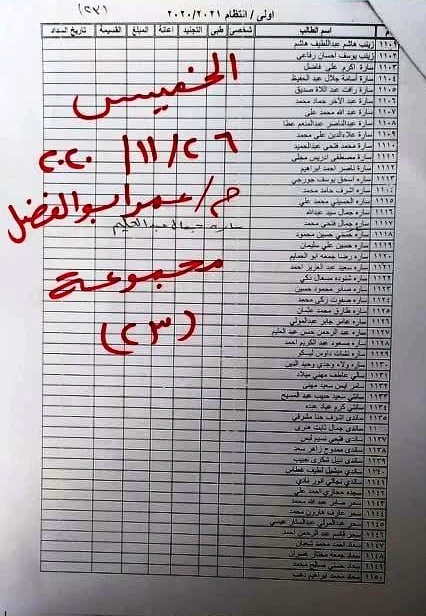 (٢٧)
اولى / انتظام ٢٠٢٠/٢٠٢١
م اسم الطالب شخصى طبى التجنيد اعانة المبلغ القسيمة تاريخ السداد
١١٠١ زينب هاشم عبداللطيف هاشم
١١٠٢ زينب يوسف احسان رفاعى
١١٠٣ سارة اكرم على فاضل
١١٠٤ سارة أسامة جلال عبد الحفيظ
١١٠٥ سارة رافت عبد اللاه صديق
١١٠٦ سارة عبد الآخر حماد محمد
١١٠٧ سارة عبد الله محمد على
١١٠٨ سارة عبدالناصر عبدالمنعم عطا
١١٠٩ سارة علاءالدين على محمد
١١١٠ سارة محمد فتحى عبدالحميد
١١١١ سارة مصطفى ادريس مجلى
١١١٢ سارة ناصر احمد ابراهيم
١١١٣ ساره اسحق يوسف جورجى
١١١٤ ساره اشرف حامد محمد
١١١٥ ساره الحسينى محمد على
١١١٦ ساره جمال سيد عبدالله
١١١٧ ساره جمال فتحى محمد
ساره جمال عبد الحليم
١١١٨ ساره حسنى حسين محمود
١١١٩ ساره حسين على سليمان
١١٢٠ ساره رضا جمعه ابو الحمايم
١١٢١ ساره سعيد عبد العزيز احمد
١١٢٢ ساره شنوده مسعال ذكى
١١٢٣ ساره صابر محمود حسين
١١٢٤ ساره صفوت زكى محمد
١١٢٥ ساره طارق محمد عثمان
١١٢٦ ساره عامر جابر عبدالمولى
١١٢٧ ساره عبد الرحمن حسن عبد الحليم
١١٢٨ ساره مسعود عبد الكريم احمد
١١٢٩ ساره نشات داوس
١١٣٠ ساره ولاء وجدى وحيد الدين
١١٣١ سالى عاطف مهنى ميلاد
١١٣٢ سامر ايمن سعيد مهنى
١١٣٣ سانتى سعيد حبيب عبد المسيح
١١٣٤ سانتى كرم عياد عبده
١١٣٥ ساندى اشرف حنا مشرقى
ساندى جمال ثابت هنرى
١١٣٧ ساندى فتحى نسيم
١١٣٨ ساندى ممدوح زاهر سعد
١١٣٩ ساندى نبيل شكرى حبيب
١١٤٠ ساندى ميشيل لطيف غطاس
١١٤١ ساندى نجاتى انور نادى
١١٤٢ سجده حجازى احمد على
١١٤٣ سحر صابر عبد الله محمد
١١٤٤ سحر عارف هارون محمد
١١٤٥ سحر عبدالمولى عبدالستار عيسى
١١٤٦ سحر قاسم عبد الرحمن احمد
١١٤٧ سعاد احمد محمد شعبان
١١٤٨ سعاد جمعه مختار
١١٤٩ سعاد حسنى صالح محمد
١١٥٠ سعاد محمد ابراهيم دهب
الخميس
٢٦/١١/٢٠٢٠
م/عمر ابو الفضل
مجموعة
(٢٣)